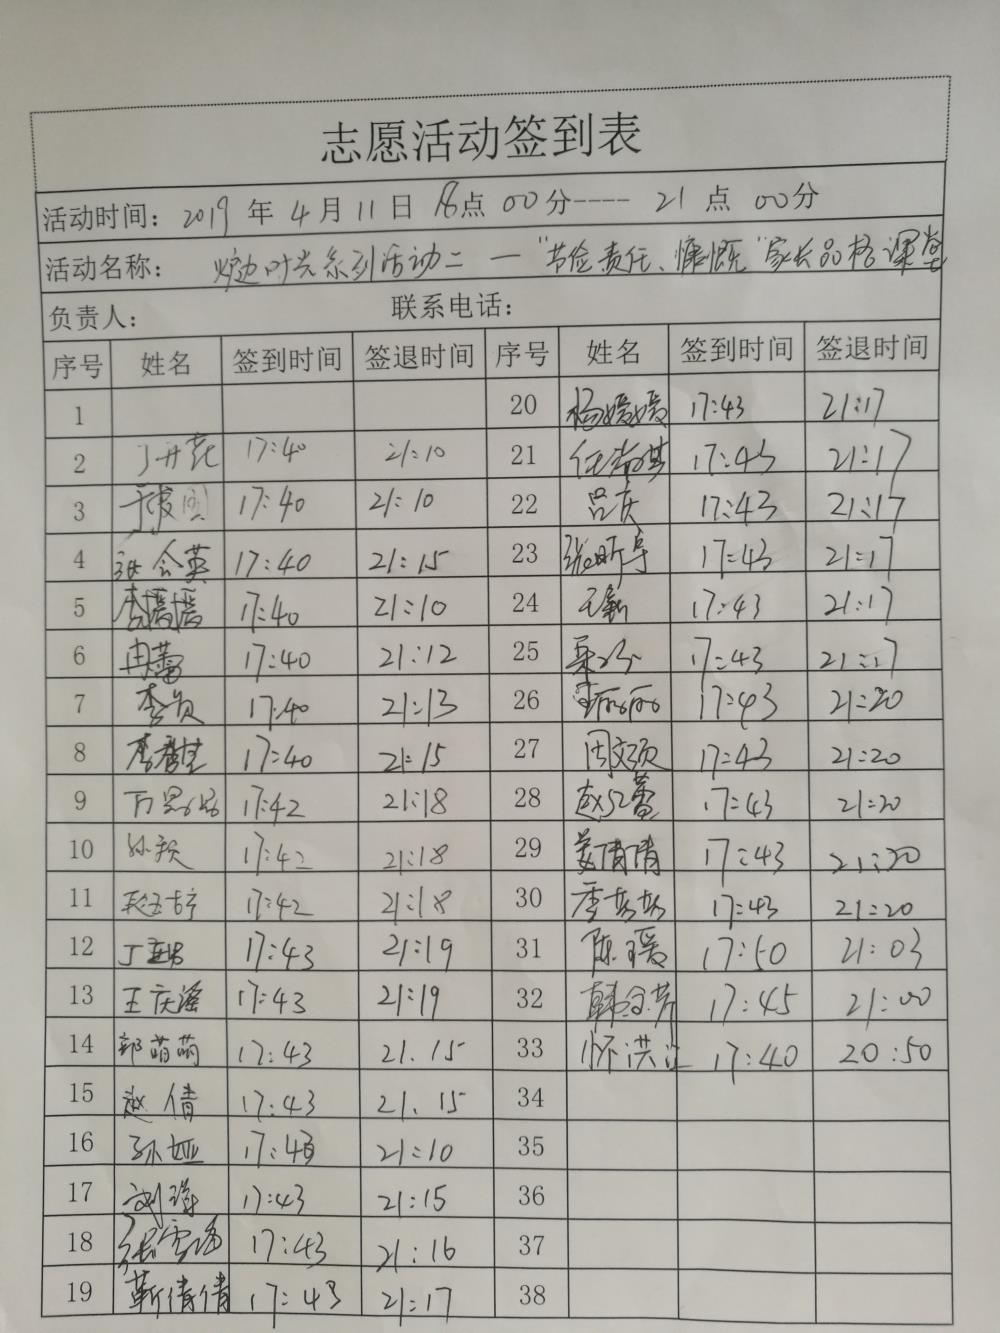 志愿活动签到表
活动时间: 2019 年 4 月 11 日 18点 00分---- 21 点 00分
活动名称: 炉边时光系列活动二 — "节俭责任、慷慨"家长品格课堂
负责人: 联系电话:
序号 姓名 签到时间 签退时间 序号 姓名 签到时间 签退时间
1 20 杨媛媛 17:43 21:17
2 17:40 21:10 21 17:43 21:17
3 17:40 21:10 22 吕庆 17:43 21:17
4 张会英 17:40 21:15 23 17:43 21:17
5 李媛媛 17:40 21:10 24 王新 17:43 21:17
6 冉蕾 17:40 21:12 25 17:43 21:17
7 17:40 21:13 26 王丽丽 17:43 21:20
8 17:40 21:15 27 周文硕 17:43 21:20
9 17:42 21:18 28 赵红蕾 17:43 21:20
10 孙颖 17:42 21:18 29 姜倩倩 17:43 21:20
11 17:42 21:18 30 17:43 21:20
12 17:43 21:19 31 陈瑗 17:50 21:03
13 王庆瑶 17:43 21:19 32 17:45 21:00
14 郭萌萌 17:43 21.15 33 17:40 20:50
15 赵倩 17:43 21.15 34
16 孙娅 17:43 21:10 35
17 17:43 21:15 36
18 17:43 21:16 37
19 靳倩倩 17:43 21:17 38